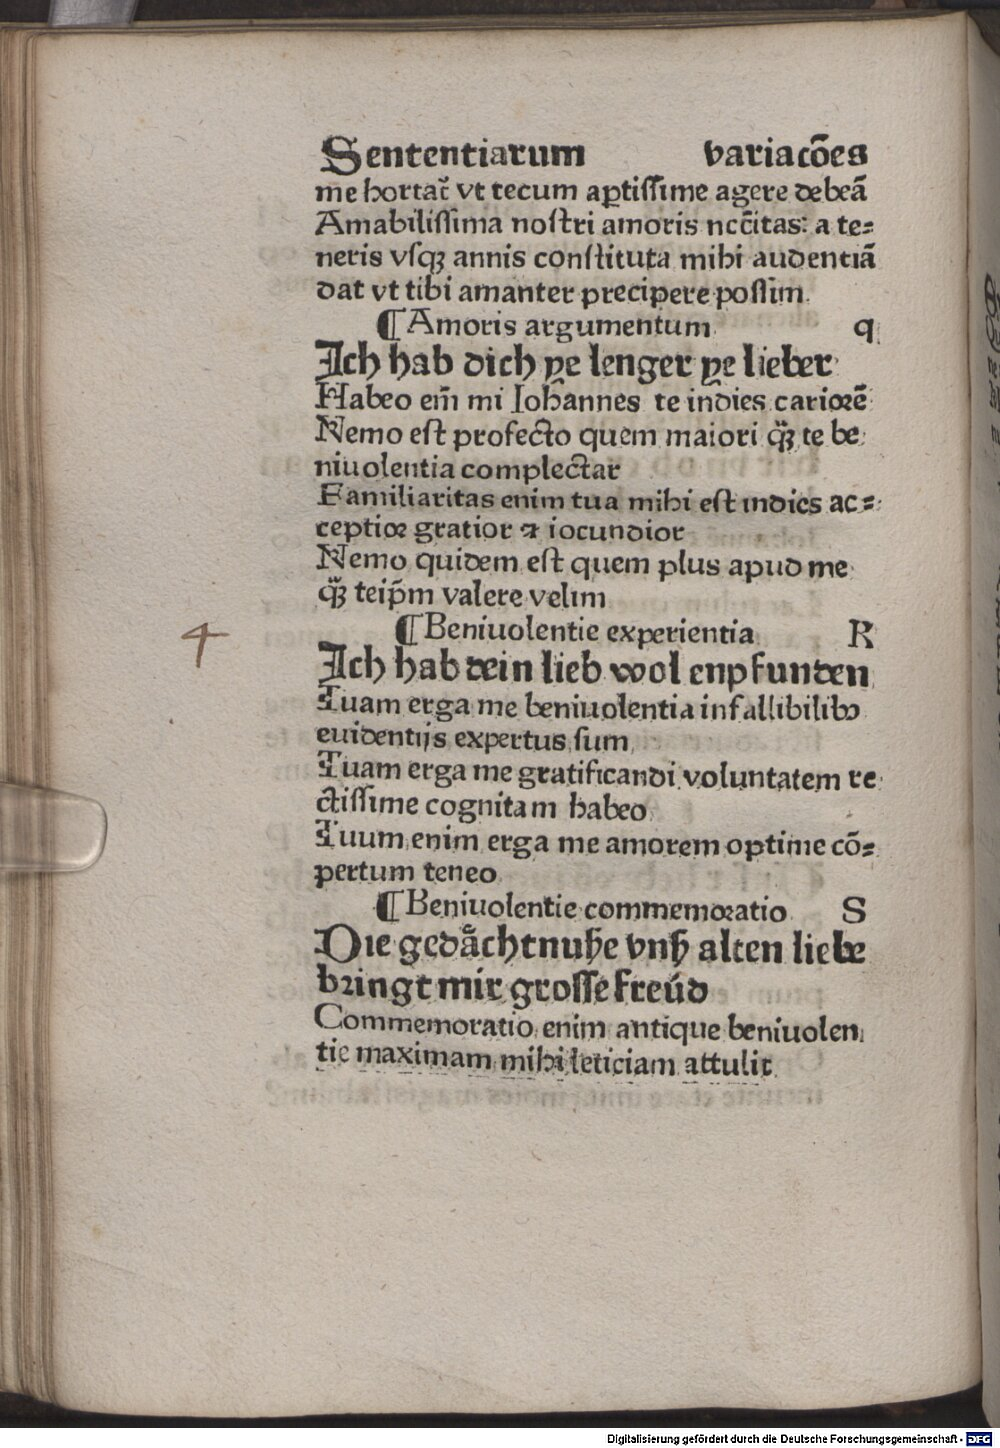 Sententiarum variacōes
me hortat᷑ vt tecum aꝑtissime agere debeā
Amabilissima nostri amoris nccītas: a te⸗
neris vsqꝫ annis constituta mihi audentiā
dat vt tibi amanter precipere possim.
¶ Amoris argumentum q
Ich hab dich ye lenger ye lieber
Habeo em̄ mi Iohannes te indies carioꝛē
Nemo est profecto quem maiori q̄ꝫ te be
niuolentia complectar
Familiaritas enim tua mihi est indies ac⸗
ceptioꝛ gratior ⁊ iocundior
Nemo quidem est quem plus apud me
q̄ꝫ teip̄m valere velim
¶ Beniuolentie experientia R
4
Ich hab dein lieb wol enpfunden
Tuam erga me beniuolentia infallibilibꝰ
euidentijs expertus sum
Tuam erga me gratificandi voluntatem re
ctissime cognitam habeo
Tuum enim erga me amorem optime cō⸗
pertum teneo
¶ Beniuolentie commemoꝛatio S
Die gedåchtnuße vnß alten liebe
bꝛingt mir grosse freúd
Commemoratio enim antique beniuolen
tie maximam mihi leticiam attulit
Digitalisierung gefördert durch die Deutsche Forschungsgemeinschaft - DFG